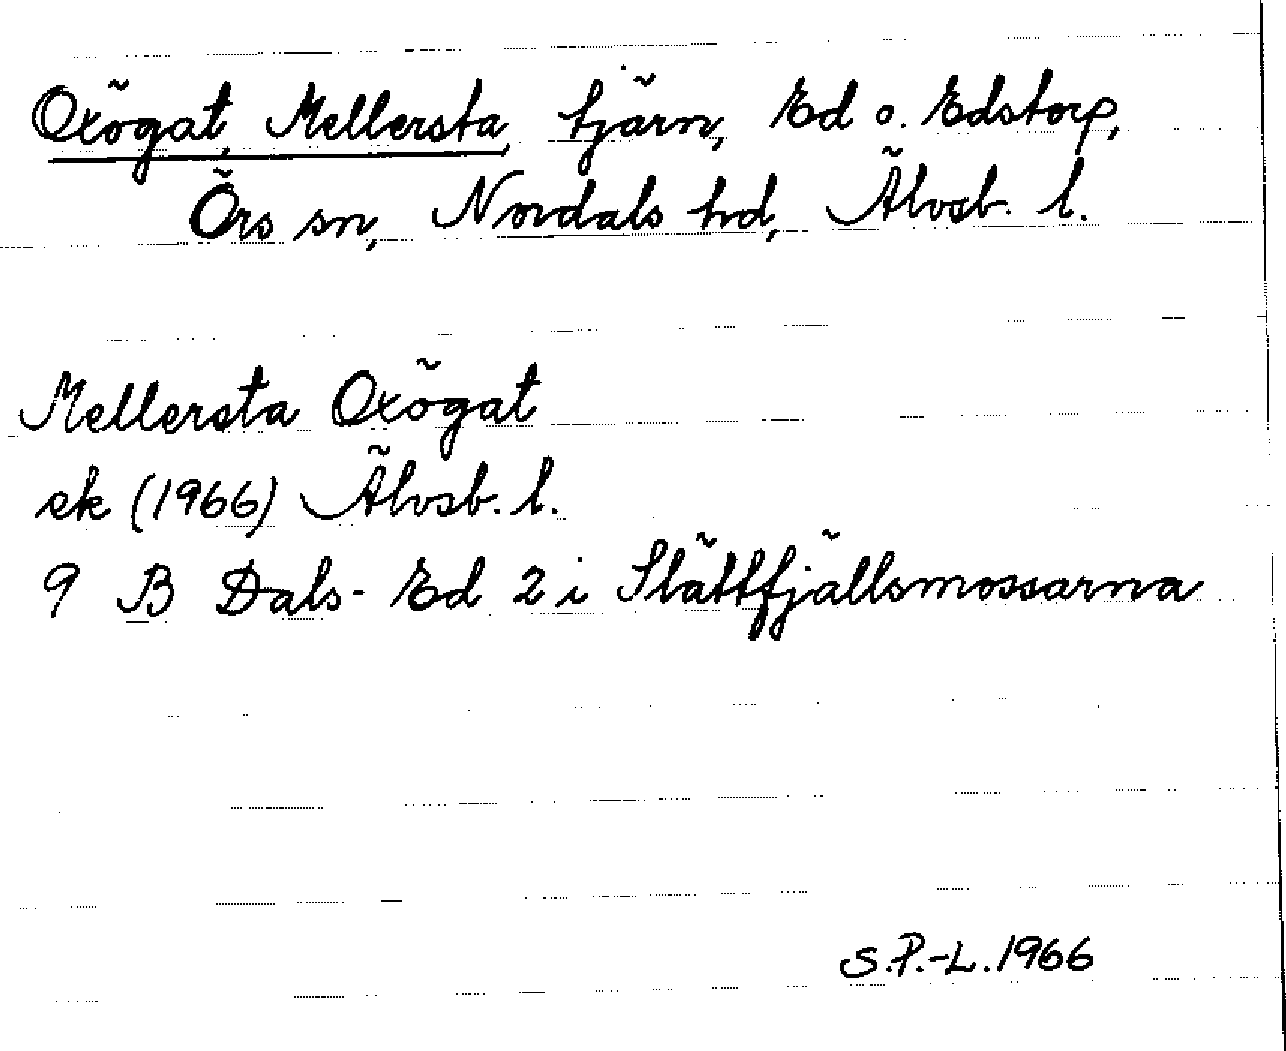 Oxögat, Mellersta, tjärn, Ed o. Edstorp,
Örs sn, Nordals hd, Älvsb. l.
Mellersta Oxögat
ek (1966) Älvsb. l.
9 B Dals-Ed 2 i Slättfjällsmossarna
S.P.-L. 1966